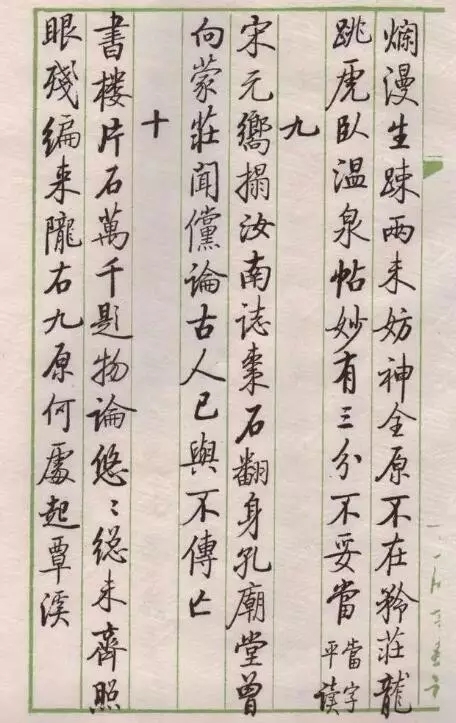 爛漫生踈兩未妨神全原不在矜莊龍
跳虎臥温泉帖妙有三分不妥當
當字
平读
九
宋元嚮搨汝南誌棗石翻身孔廟堂曾
向蒙莊聞儻論古人已與不傳亡
十
書楼片石萬千題物論悠〻總未齊照
眼殘編来隴右九原何處起覃溪